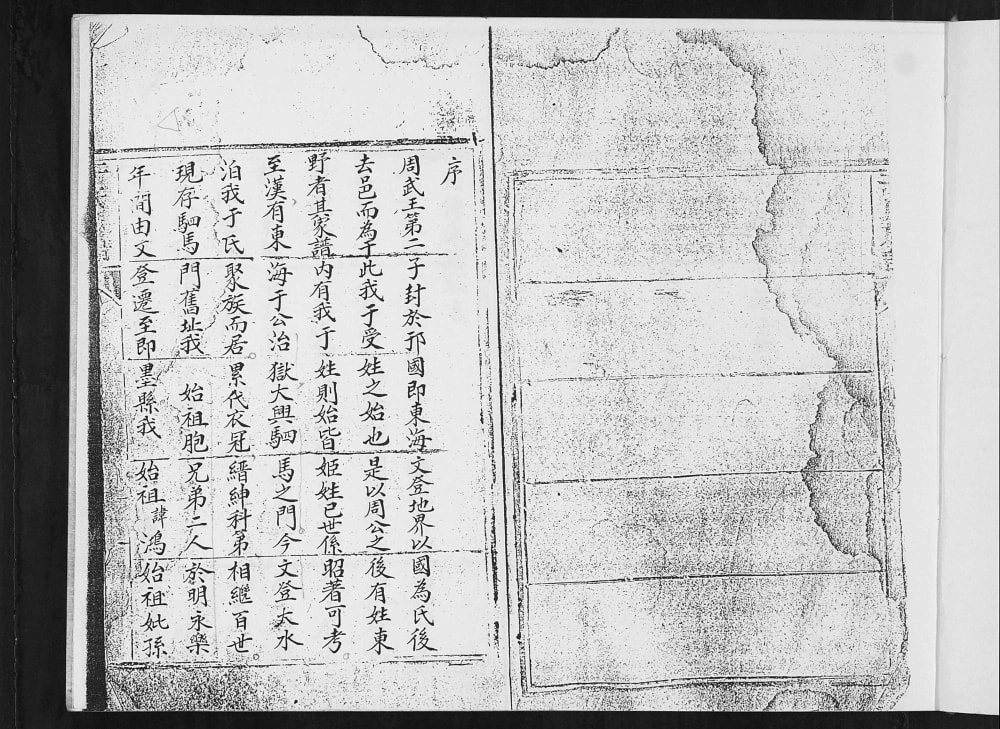 序
周武王第二子封於邘國即東海文登地界以國為氏後
去邑而為于此我于受姓之始也是以周公之後有姓東
野者其家譜內有我于姓則始皆姬姓已世係昭著可考
至漢有東海于公治獄大興駟馬之門今文登大水
泊我于氏聚族而居累代衣冠縉紳科第相繼百世
現存駟馬門舊址我始祖胞兄弟二人於明永樂
年間由文登遷至即墨縣我始祖諱鴻始祖妣孫